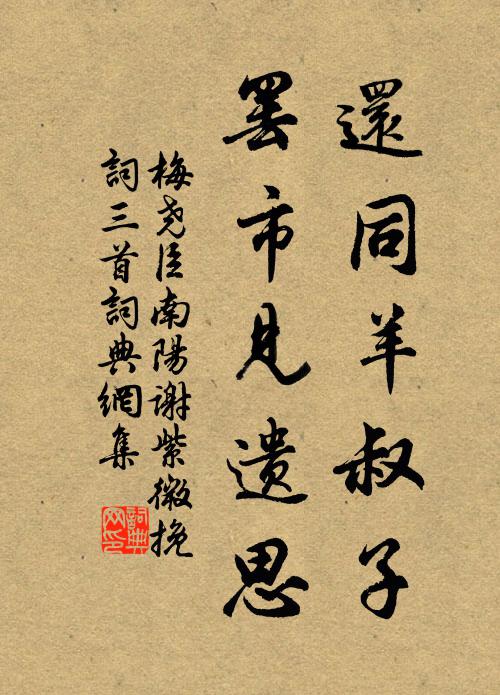 還同羊叔子
罢市見遗思
梅尧臣南陽谢紫微挽
詞三首詞典網集
詞典
网印